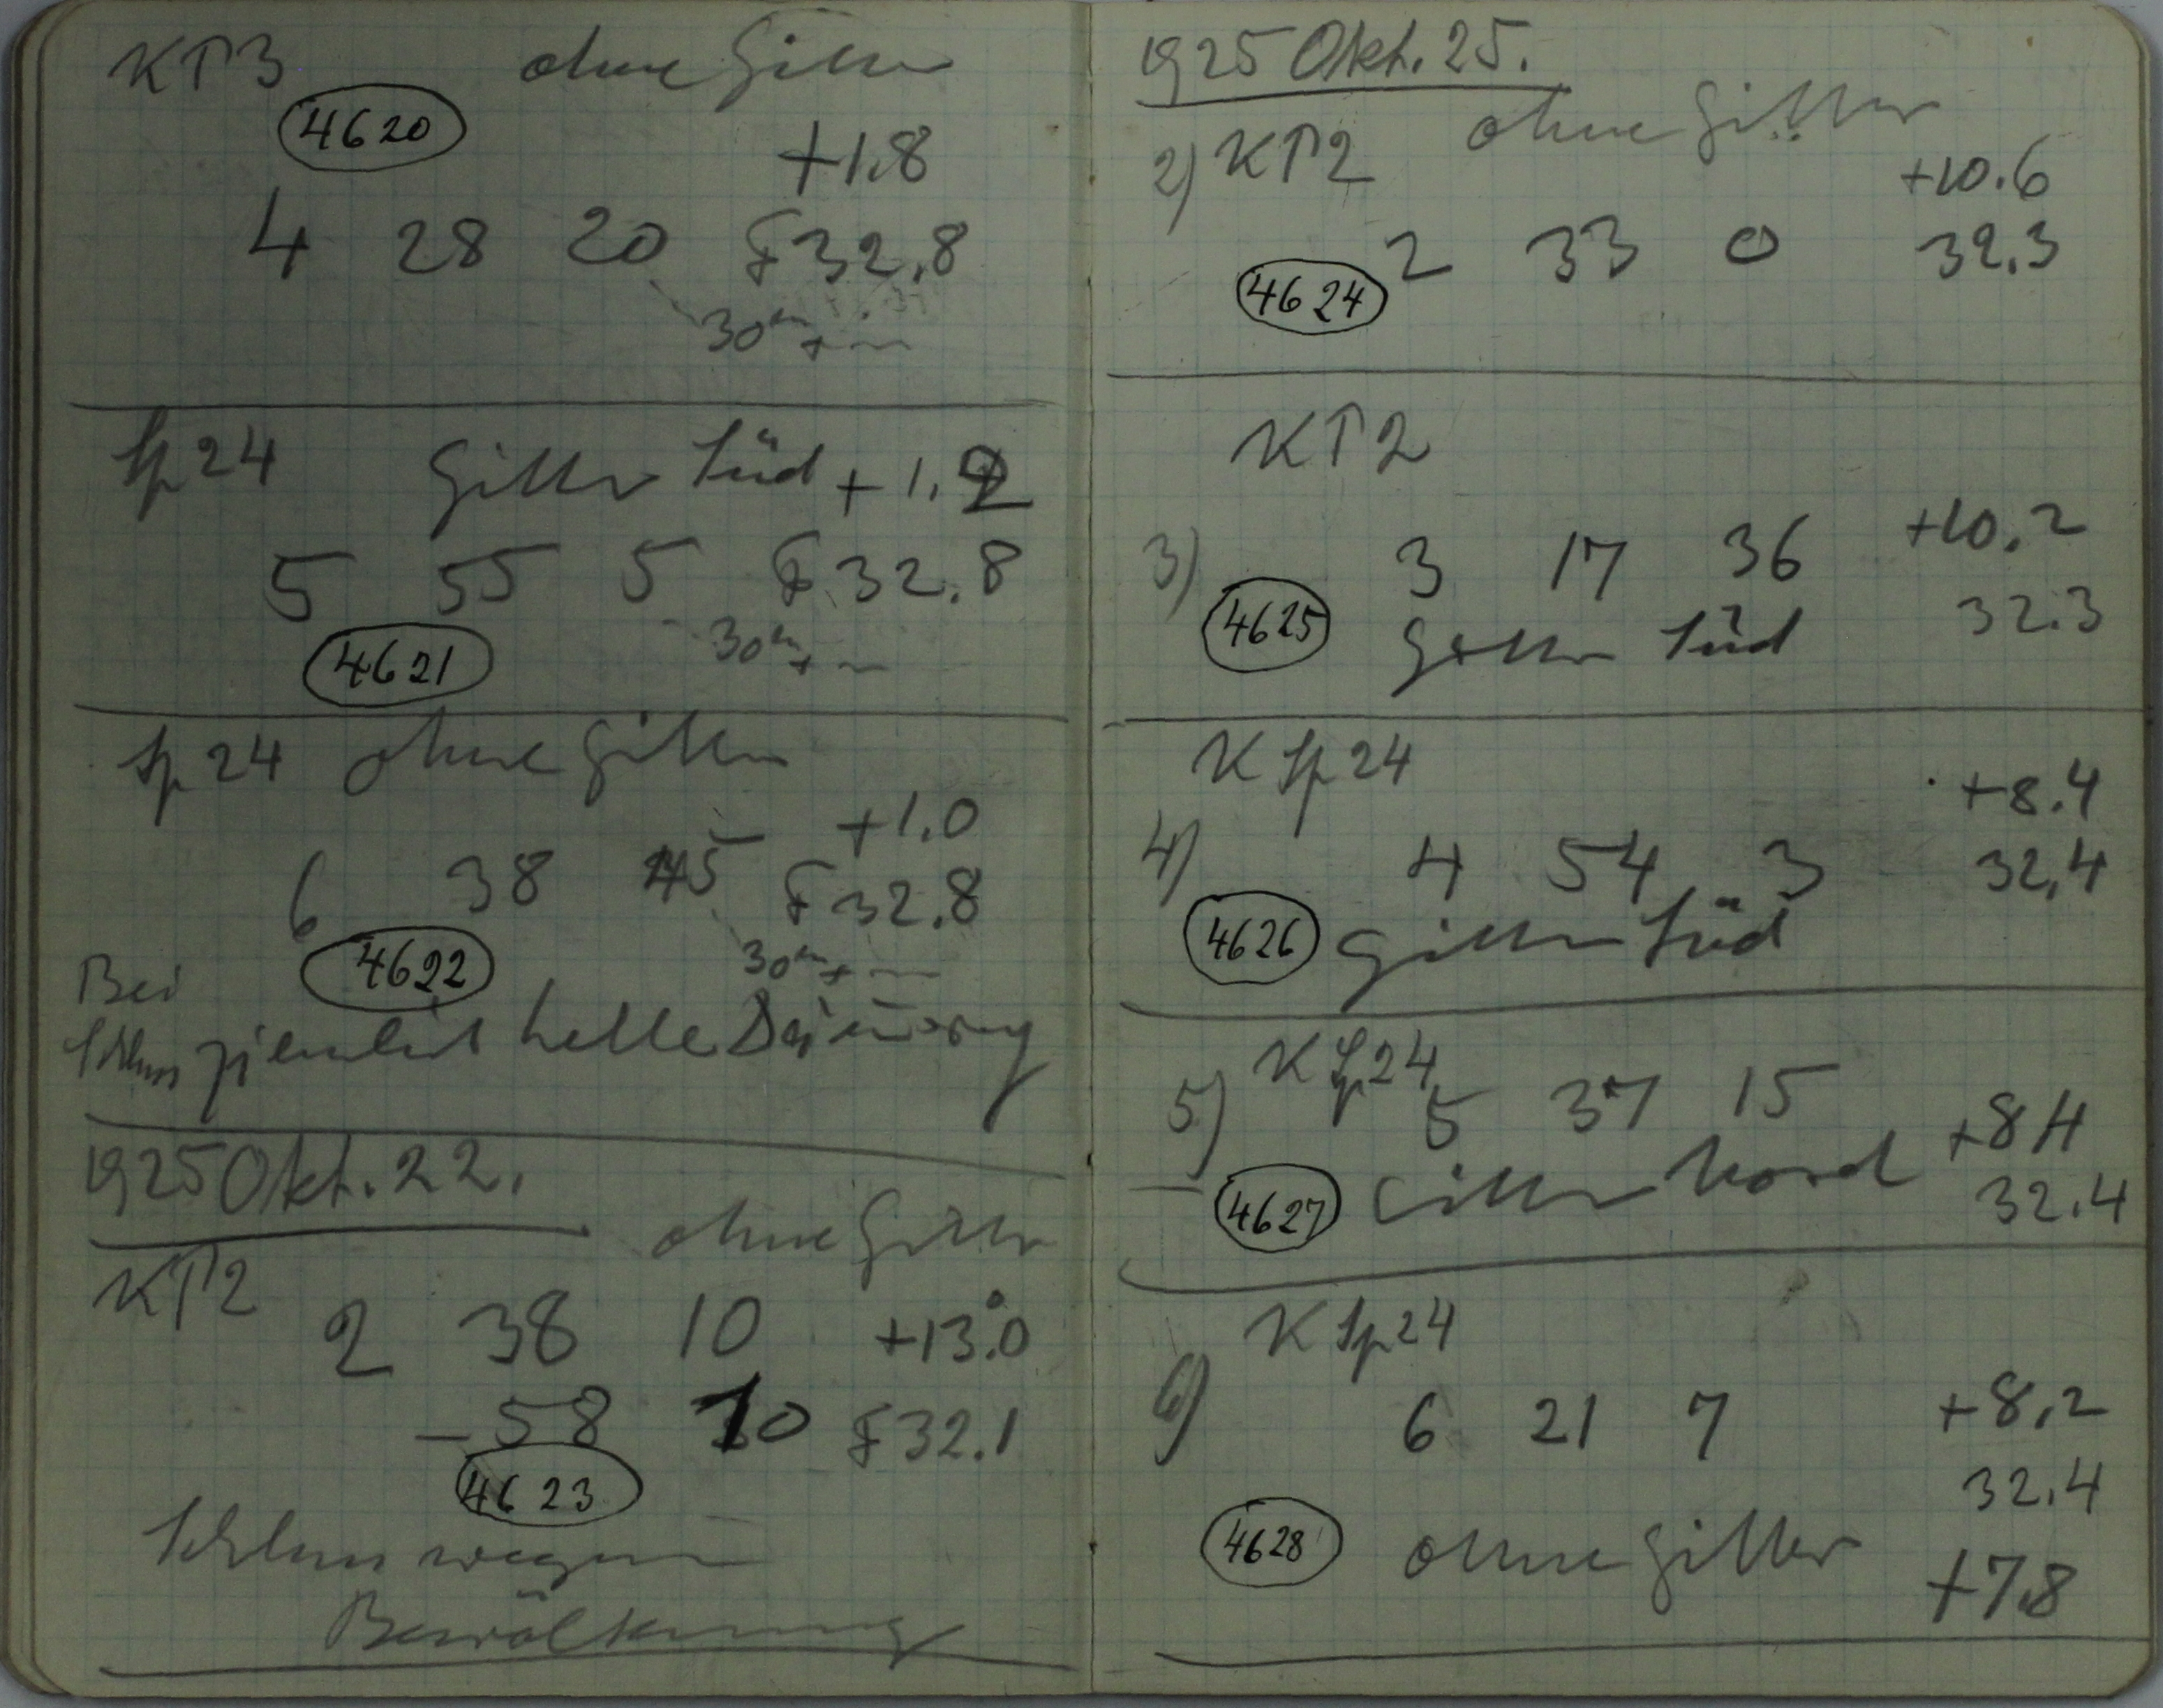 KΠ3 ohne Gitter
4620
+1.8
4 28 20 F 32.8
30m +
Sp 24 Gitter Süd +1.2
5 55 5 F 32.8
4621 30m +
Sp 24 ohne Gitter
+1.0
6 38 45 F 32.8
4622 30m +
Bei
Schluss ziemlich helle Dämmerung
1925 Okt. 22.
ohne Gitter
KΠ2 2 38 10 +13.0°
– 58 10 F 32.1
4623
Schluss wegen
Bewölkung
1925 Okt. 25.
2) KΠ2 ohne Gitter
+10.6
2 33 0 32.3
4624
KΠ2
3) 3 17 36 +10.2
4625 Gitter Süd 32.3
K Sp 24
+8.4
4) 4 54 3 32.4
4626 Gitter Süd
K Sp 24
5) 5 37 15 +8.4
4627 Gitter Nord
32.4
K Sp 24
6) 6 21 7 +8.2
32.4
4628 ohne Gitter
+7.8